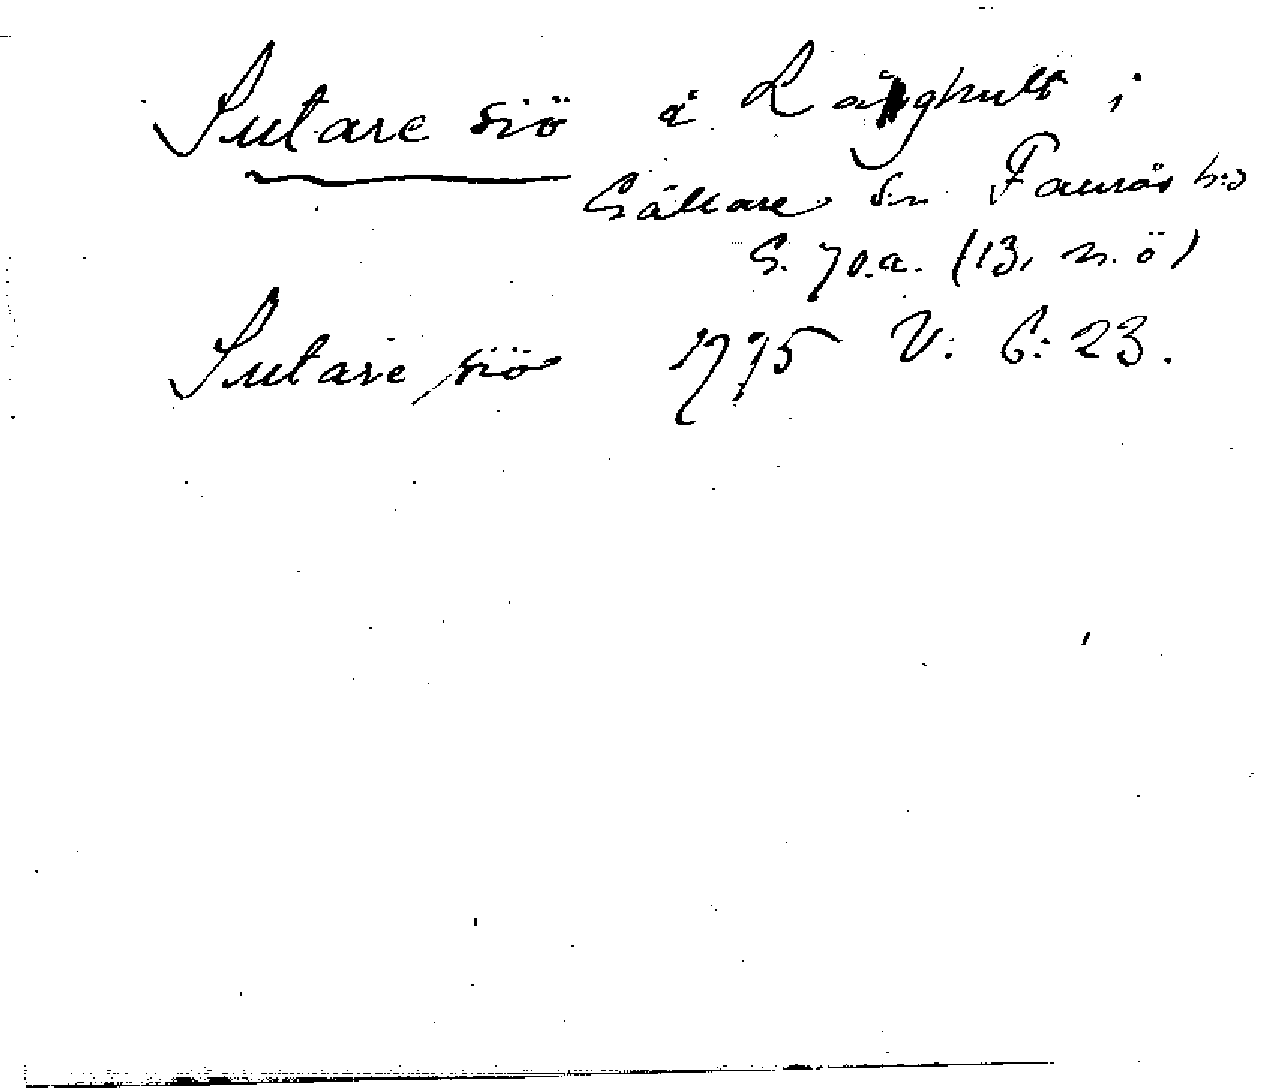 Sutare siö å Långhult i
Gällare sn Faurås h:d
G. 70.a. (13, n. ö)
Sutare siö 1775 V: 6: 23.